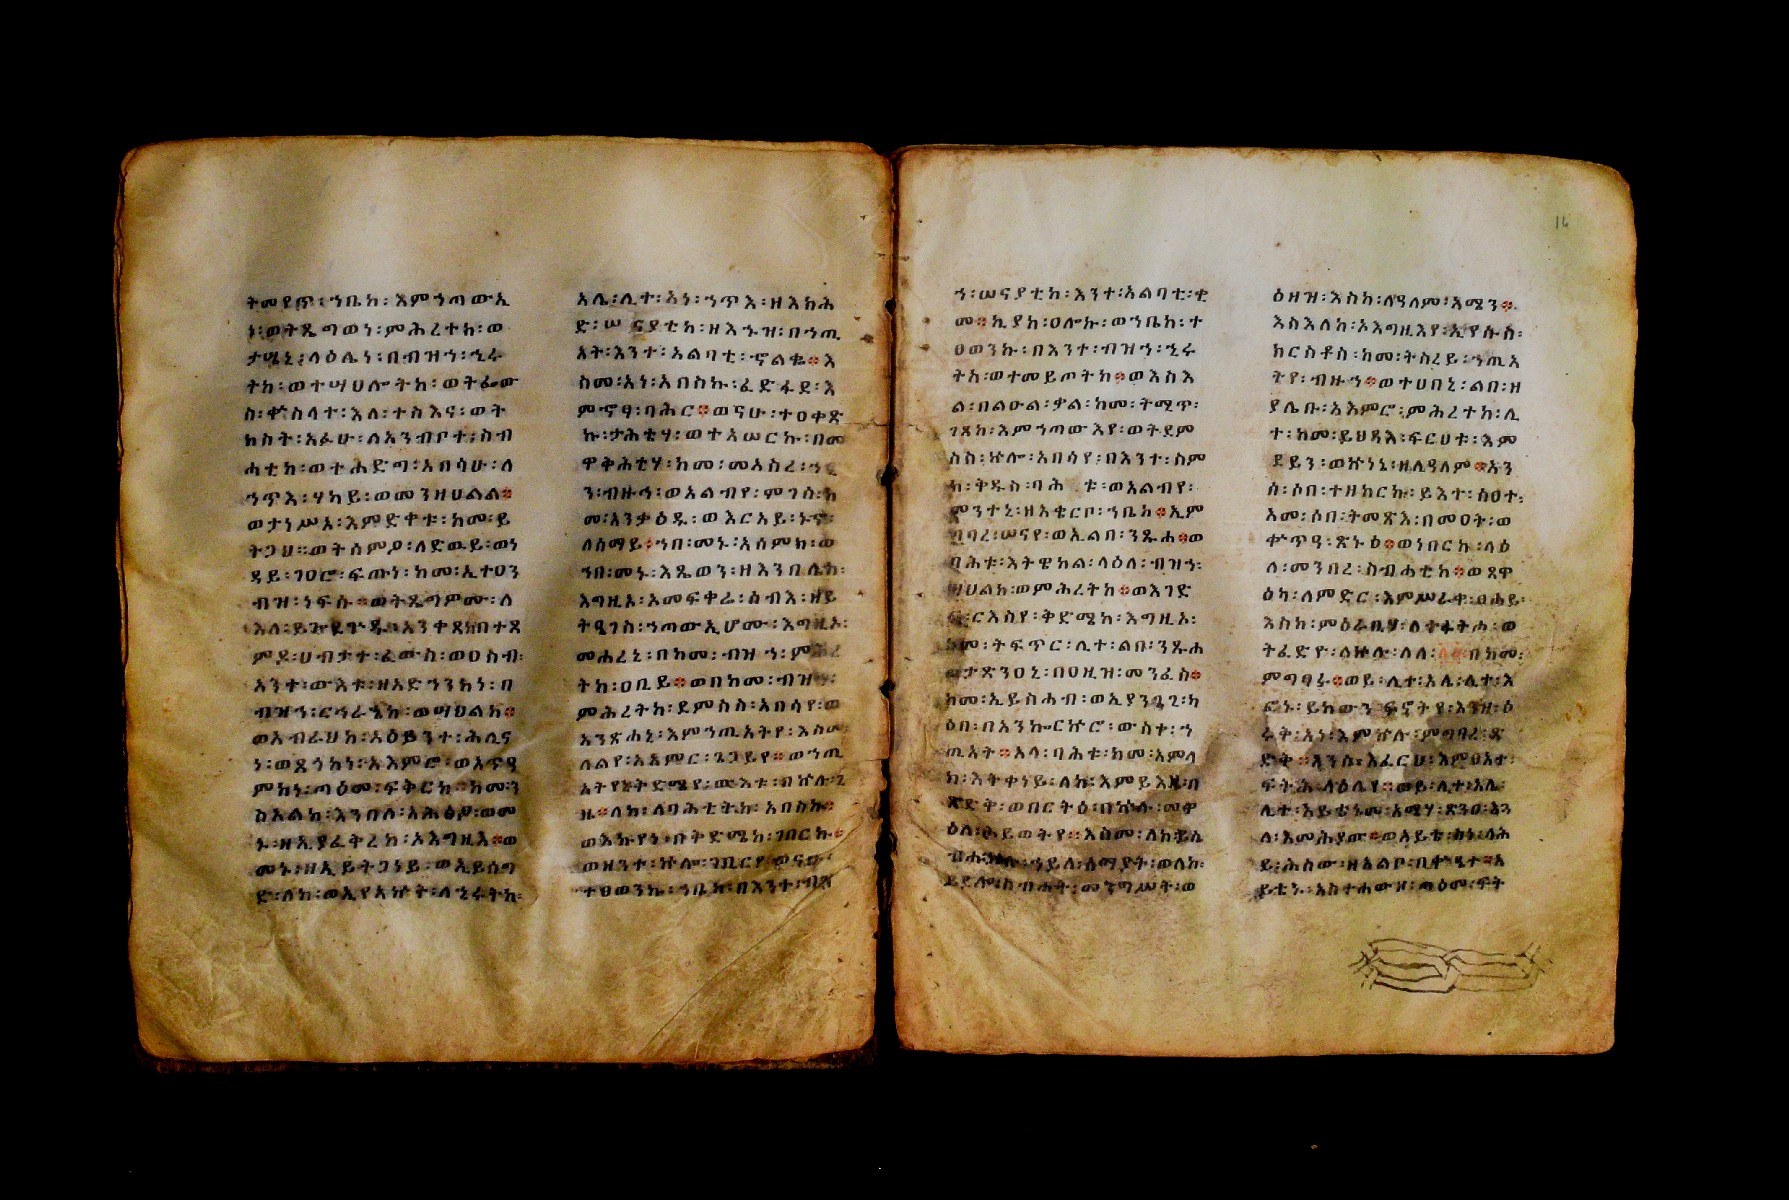 ትመይጥ፡ኀቤከ፡እምኀጣውኢ
ነ፡ወትጼግወነ፡ምሕረተከ፡ወ
ታሜኒ፡ላዕሌነ፡በብዝኀ፡ኂሩ
ትከ፡ወተሣህሎትከ፡ወትፌው
ስ፡ቍስላተ፡እለ፡ተስእና፡ወት
ከስት፡አፉሁ፡ለአንብቦተ፡ስብ
ሓቲከ፡ወተሐድግ፡አበሳሁ፡ለ
ኀጥእ፡ሃካይ፡ወመንዘህልል።
ወታነሥእ፡እምድቀቱ፡ከመ፡ይ
ትጋህ።ወትሰምዖ፡ለድዉይ፡ወነ
ዳይ፡ገዐሮ፡ፍጡነ፡ከመ፡ኢተዐን
ብዝ፡ነፍሱ።ወትጼግምሙ፡ለ
እለ፡ አንቀጸ በተጸ
ምዶ፡ሀብታተ፡ፈውስ፡ወዐስብ፡
አንተ፡ውእቱ፡ዘአድኀንከነ፡በ
ብዝኀ፡ርኅራኄከ፡ወሣህልከ።
ወአብራህከ፡አዕይንተ፡ሕሊና
ነ፡ወጸጎከነ፡አእምሮ፡ወአጥዓ
ምከነ፡ጣዕመ፡ፍቅርከ።ከመ፡ን
ስአልከ፡እንበለ፡ ወመ
ኑ፡ዘኢያፈቅረከ፡ኦእግዚእ።ወ
መኑ፡ዘኢይትጋነይ፡ወኢይሰግ
ድ፡ለከ፡ወኢየአኵት፡ለኂሩትከ፡
አሌ፡ሊተ፡አነ፡ኀጥእ፡ዘእክሕ
ድ፡ሠናያቲከ፡ዘእኁዝ፡በኀጢ
አት፡እንተ፡አልባቲ፡ኆልቈ።እ
ስመ፡አነ፡አበስኩ፡ፈድፋደ፡እ
ምኆፃ፡ባሕር።ወናሁ፡ተዐቀጽ
ኩ፡ታሕቲሃ፡ወተአሠርኩ፡በመ
ዋቅሕቲሃ፡ከመ፡መአስረ፡
ን፡ብዙኅ፡ወአልብየ፡ምገስ፡ከ
መ፡አንቃዕዱ፡ወእርአይ፡ኑኀ፡
ለሰማይ።ኀበ፡መኑ፡አሰምክ፡ወ
ኀበ፡መኑ፡እጼውን፡ዘእንበሌከ፡
እግዚኦ፡አመፍቀሬ፡ሰብእ፡ዘይ
ትዔገስ፡ኀጣውኢሆሙ፡እግዚኦ፡
መሐረኒ፡በከመ፡ብዝኀ፡
ትከ፡ዐቢይ።ወበከመ፡ብዝኀ፡
ምሕረትከ፡ደምስስ፡አበሳየ፡ወ
አንጽሐኒ፡እምኀጢአትየ፡እስመ
ለልየ፡አአምር፡ጌጋይየ።ወኀጢ
አትየኒ ቅድሜየ፡ውእቱ፡በኵሉ፡ጊ
ዜ።ለከ፡ለባሕቲትከ፡አበስኩ።
ወእኩየኒ፡በቅድሜከ፡ገበርኩ።
ወዘንተ፡ኵሎ፡ገቢርየ፡ወናሁ፡
ተፀወንኩ፡ኀቤከ፡በእንተ፡ብዝ
ኀ፡ሠናያቲከ፡እንተ፡አልባቲ፡ቲ
መ።ኪያከ፡ዐሎኩ፡ወኀቤከ፡ተ
ፀወንኩ፡በእንተ፡ብዝኀ፡ኂሩ
ትከ፡ወተመይጦትከ።ወእስእ
ል፡በልዑል፡ቃል፡ከመ፡ትሚጥ፡
ገጸከ፡እምኀጣውእየ፡ወትደም
ስስ፡ኵሎ፡አበሳየ፡በእንተ፡ስም
ከ፡ቅዱስ፡ባሕ ቱ፡ወአልብየ፡
ምንተኒ፡ዘአቄርቦ፡ኀቤከ።ኢም
ግባረ፡ሠናየ፡ወኢልበ፡ንጹሐ።ወ
ባሕቱ፡እትዌከል፡ላዕለ፡ብዝኀ፡
ሣህልከ፡ወምሕረትከ።ወእገድ
ፍ፡ርእስየ፡ቅድሜከ፡እግዚኦ፡
ከመ፡ትፍጥር፡ሊተ፡ልበ፡ንጹሐ
ወታጽንዐኒ፡በዐዚዝ፡መንፈስ።
ከመ፡ኢይስሐብ፡ወኢያንጌጊ፡ካ
ዕበ፡በአንኰርኵሮ፡ውስተ፡ኀ
ጢአት።አላ፡ባሕቱ፡ከመ፡አምላ
ክ፡እትቀነይ፡ለከ፡እምይእዜ፡በ
ጽድቅ፡ወበርትዕ፡በኵሉ፡መዋ
ዕለ፡ሕይወትየ።እስመ፡ለከ
ኀይለ፡ሰማያት፡ወለከ፡
ይደሉ፡ስብሐት፡መንግሥት፡ወ
ዕዘዝ፡እስከ፡ለዓለም፡አሜን።
እስእለከ፡ኦእግዚእየ፡ኢየሱስ፡
ክርስቶስ፡ከመ፡ትስረይ፡ኀጢአ
ትየ፡ብዙኀ።ወተሀበኒ፡ልበ፡ዘ
ያሌቡ፡አእምሮ፡ምሕረተከ፡ሊ
ተ፡ከመ፡ይህዳእ፡ፍርሀቱ፡እም
ደይን፡ወኵነኔ፡ዘለዓለም።አን
ሰ፡ሶበ፡ተዘከርኩ፡ይእተ፡ሰዐተ፡
አመ፡ሶበ፡ትመጽእ፡በመዐት፡ወ
ቍጥዓ፡ጽኑዕ።ወነበርከ፡ላዕ
ለ፡መንበረ፡ስብሓቲከ።ወጸዋ
ዕካ፡ለምድር፡እምሥራቀ፡ፀሐይ፡
እስከ፡ምዕራቢሃ፡ለተፋትሖ፡ወ
ትፈድዮ፡ለኵሉ፡ለለ፡ በከመ፡
ምግባሩ።ወይ፡ሊተ፡አሌ፡ሊተ፡እ
ፎኑ፡ይከውን ፍኖትየ፡እንዘ፡ዕ
ሩቅ፡አነ፡እምኵሉ፡ምግባረ፡ጽ
ድቅ።አንሰ፡እፈርህ፡እምፀአተ፡
ፍትሕ፡ላዕሌየ።ወይ፡ሊተ፡አሌ፡
ሊተ፡ አሜሃ፡